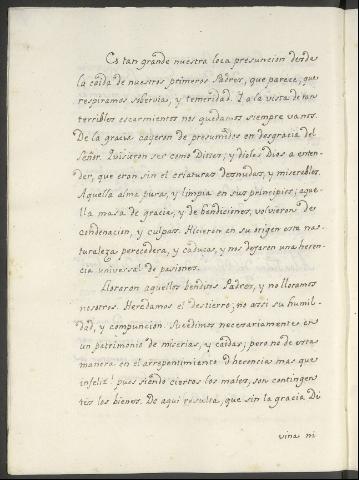 Es tan grande nuestra loca presuncion desde
la caida de nuestros primeros Padres, que parece, que
respiramos sobervias, y temeridad. Y a la vista de tan
terribles escarmientos nos quedamos siempre vanos.
De la gracia cayeron de presumidos en desgracia del
Señor. Quisieron ser como Dioses; y dioles Dios a enten-
der, que eran sin el criaturas desnudas, y miserables.
Aquella alma pura, y limpia en sus principios; aque-
lla masa de gracia, y de bendiciones, volvieron de
condenacion, y culpas. Hicieron en su origen esta na-
turaleza perecedera, y caduca, y nos dejaron una heren-
cia universal de pasiones.
Lloraron aquellos benditos Padres, y no lloramos
nosotros. Heredamos el destierro; no assi su humil-
dad, y compuncion. Sucedimos necesariamente en
un patrimonio de miserias, y caidas; pero no de esta
manera en el arrepentimiento. O herencia mas que
infeliz! pues siendo ciertos los males, son contingen-
tes los bienes. De aqui resulta, que sin la gracia Di
vina ni